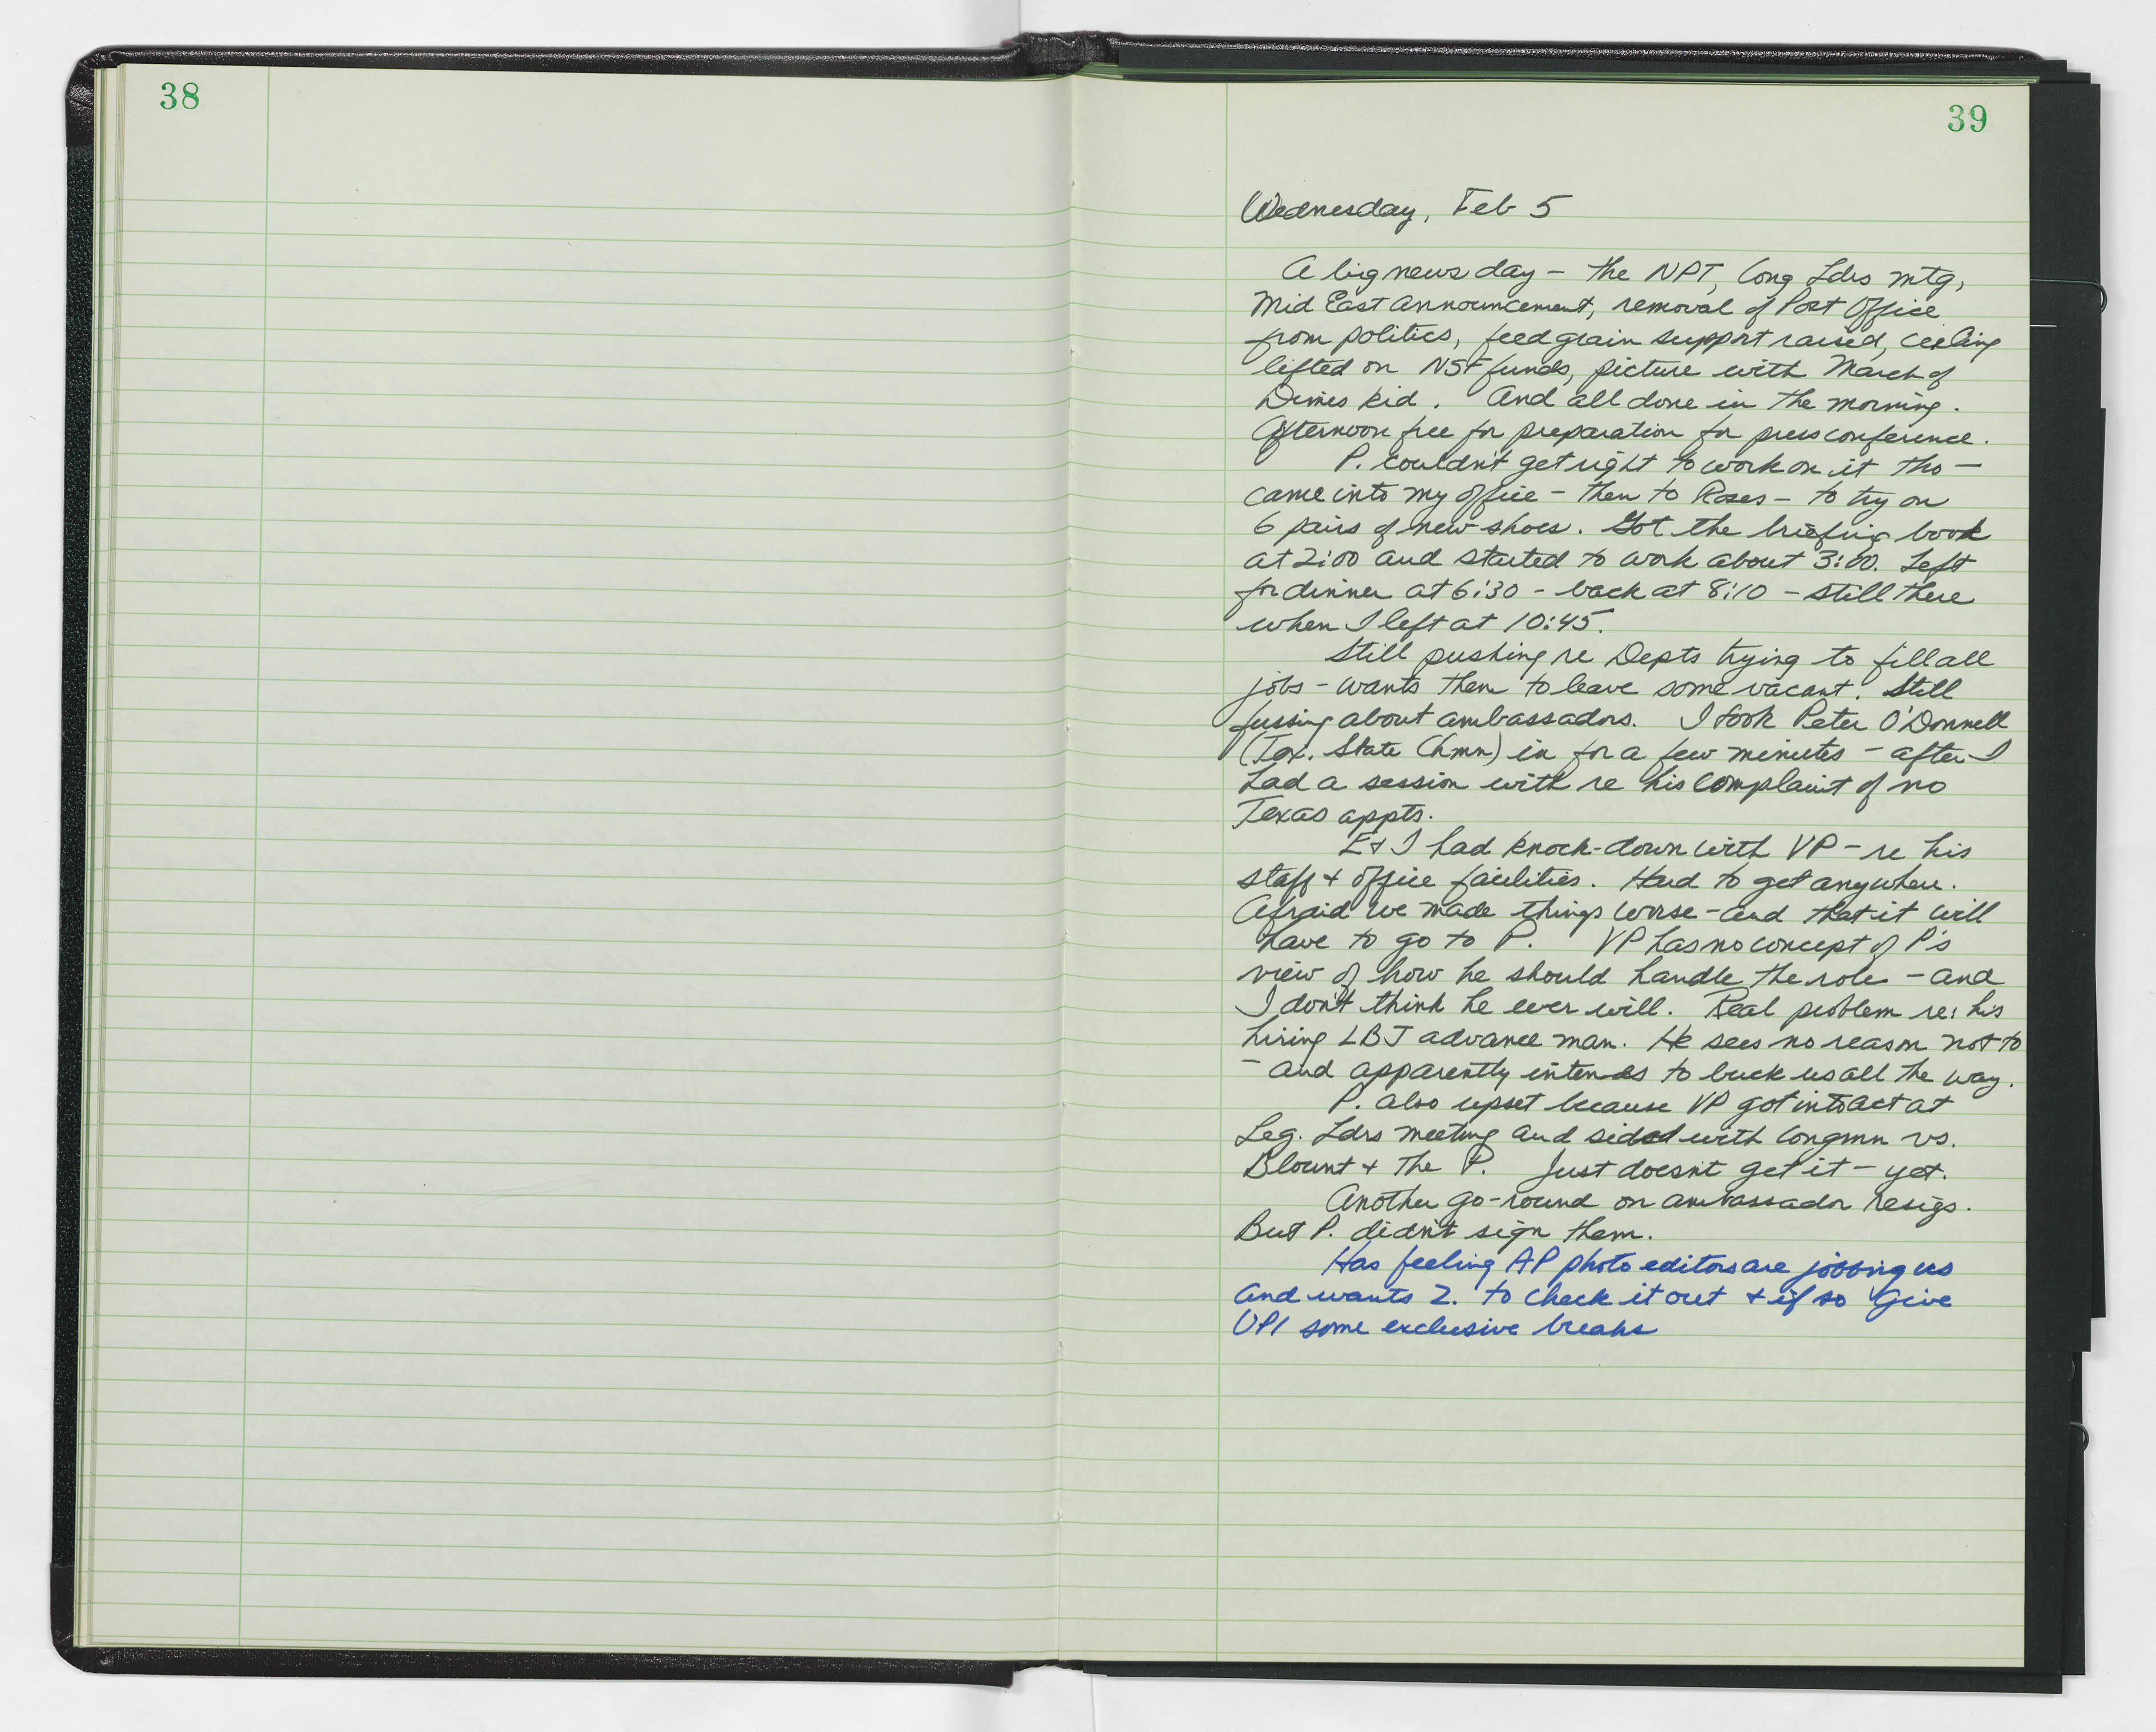 38
39
Wednesday, Feb 5
A big news day – the NPT, Cong Ldrs mtg,
Mid East announcement, removal of Post Office
from politics, feed grain support raised, ceiling
lifted on NSF funds, picture with March of
Dimes kid. And all done in the morning.
Afternoon free for preparation for press conference.
P. couldn't get right to work on it tho –
came into my office – then to Roses – to try on
6 pairs of new shoes. Got the briefing book
at 2:00 and started to work about 3:00. Left
for dinner at 6:30 – back at 8:10 – still there
when I left at 10:45.
Still pushing re Depts trying to fill all
jobs – wants them to leave some vacant. Still
fussing about ambassadors. I took Peter O'Donnell
(Tex. State Chmn) in for a few minutes – after I
had a session with re his complaint of no
Texas appts.
E + I had knock-down with VP – re his
staff + office facilities. Hard to get anywhere.
Afraid we made things worse – and that it will
have to go to P. VP has no concept of P's
view of how he should handle the role – and
I don't think he ever will. Real problem re: his
hiring LBJ advance man. He sees no reason not to
– and apparently intends to buck us all the way.
P. also upset because VP got into act at
Leg. Ldrs meeting and sided with Congmn vs.
Blount + the P. Just doesn't get it – yet.
Another go-round on ambassador resigs.
But P. didn't sign them.
Has feeling AP photo editors are jobbing us
and wants Z. to check it out + if so give
UPI some exclusive breaks